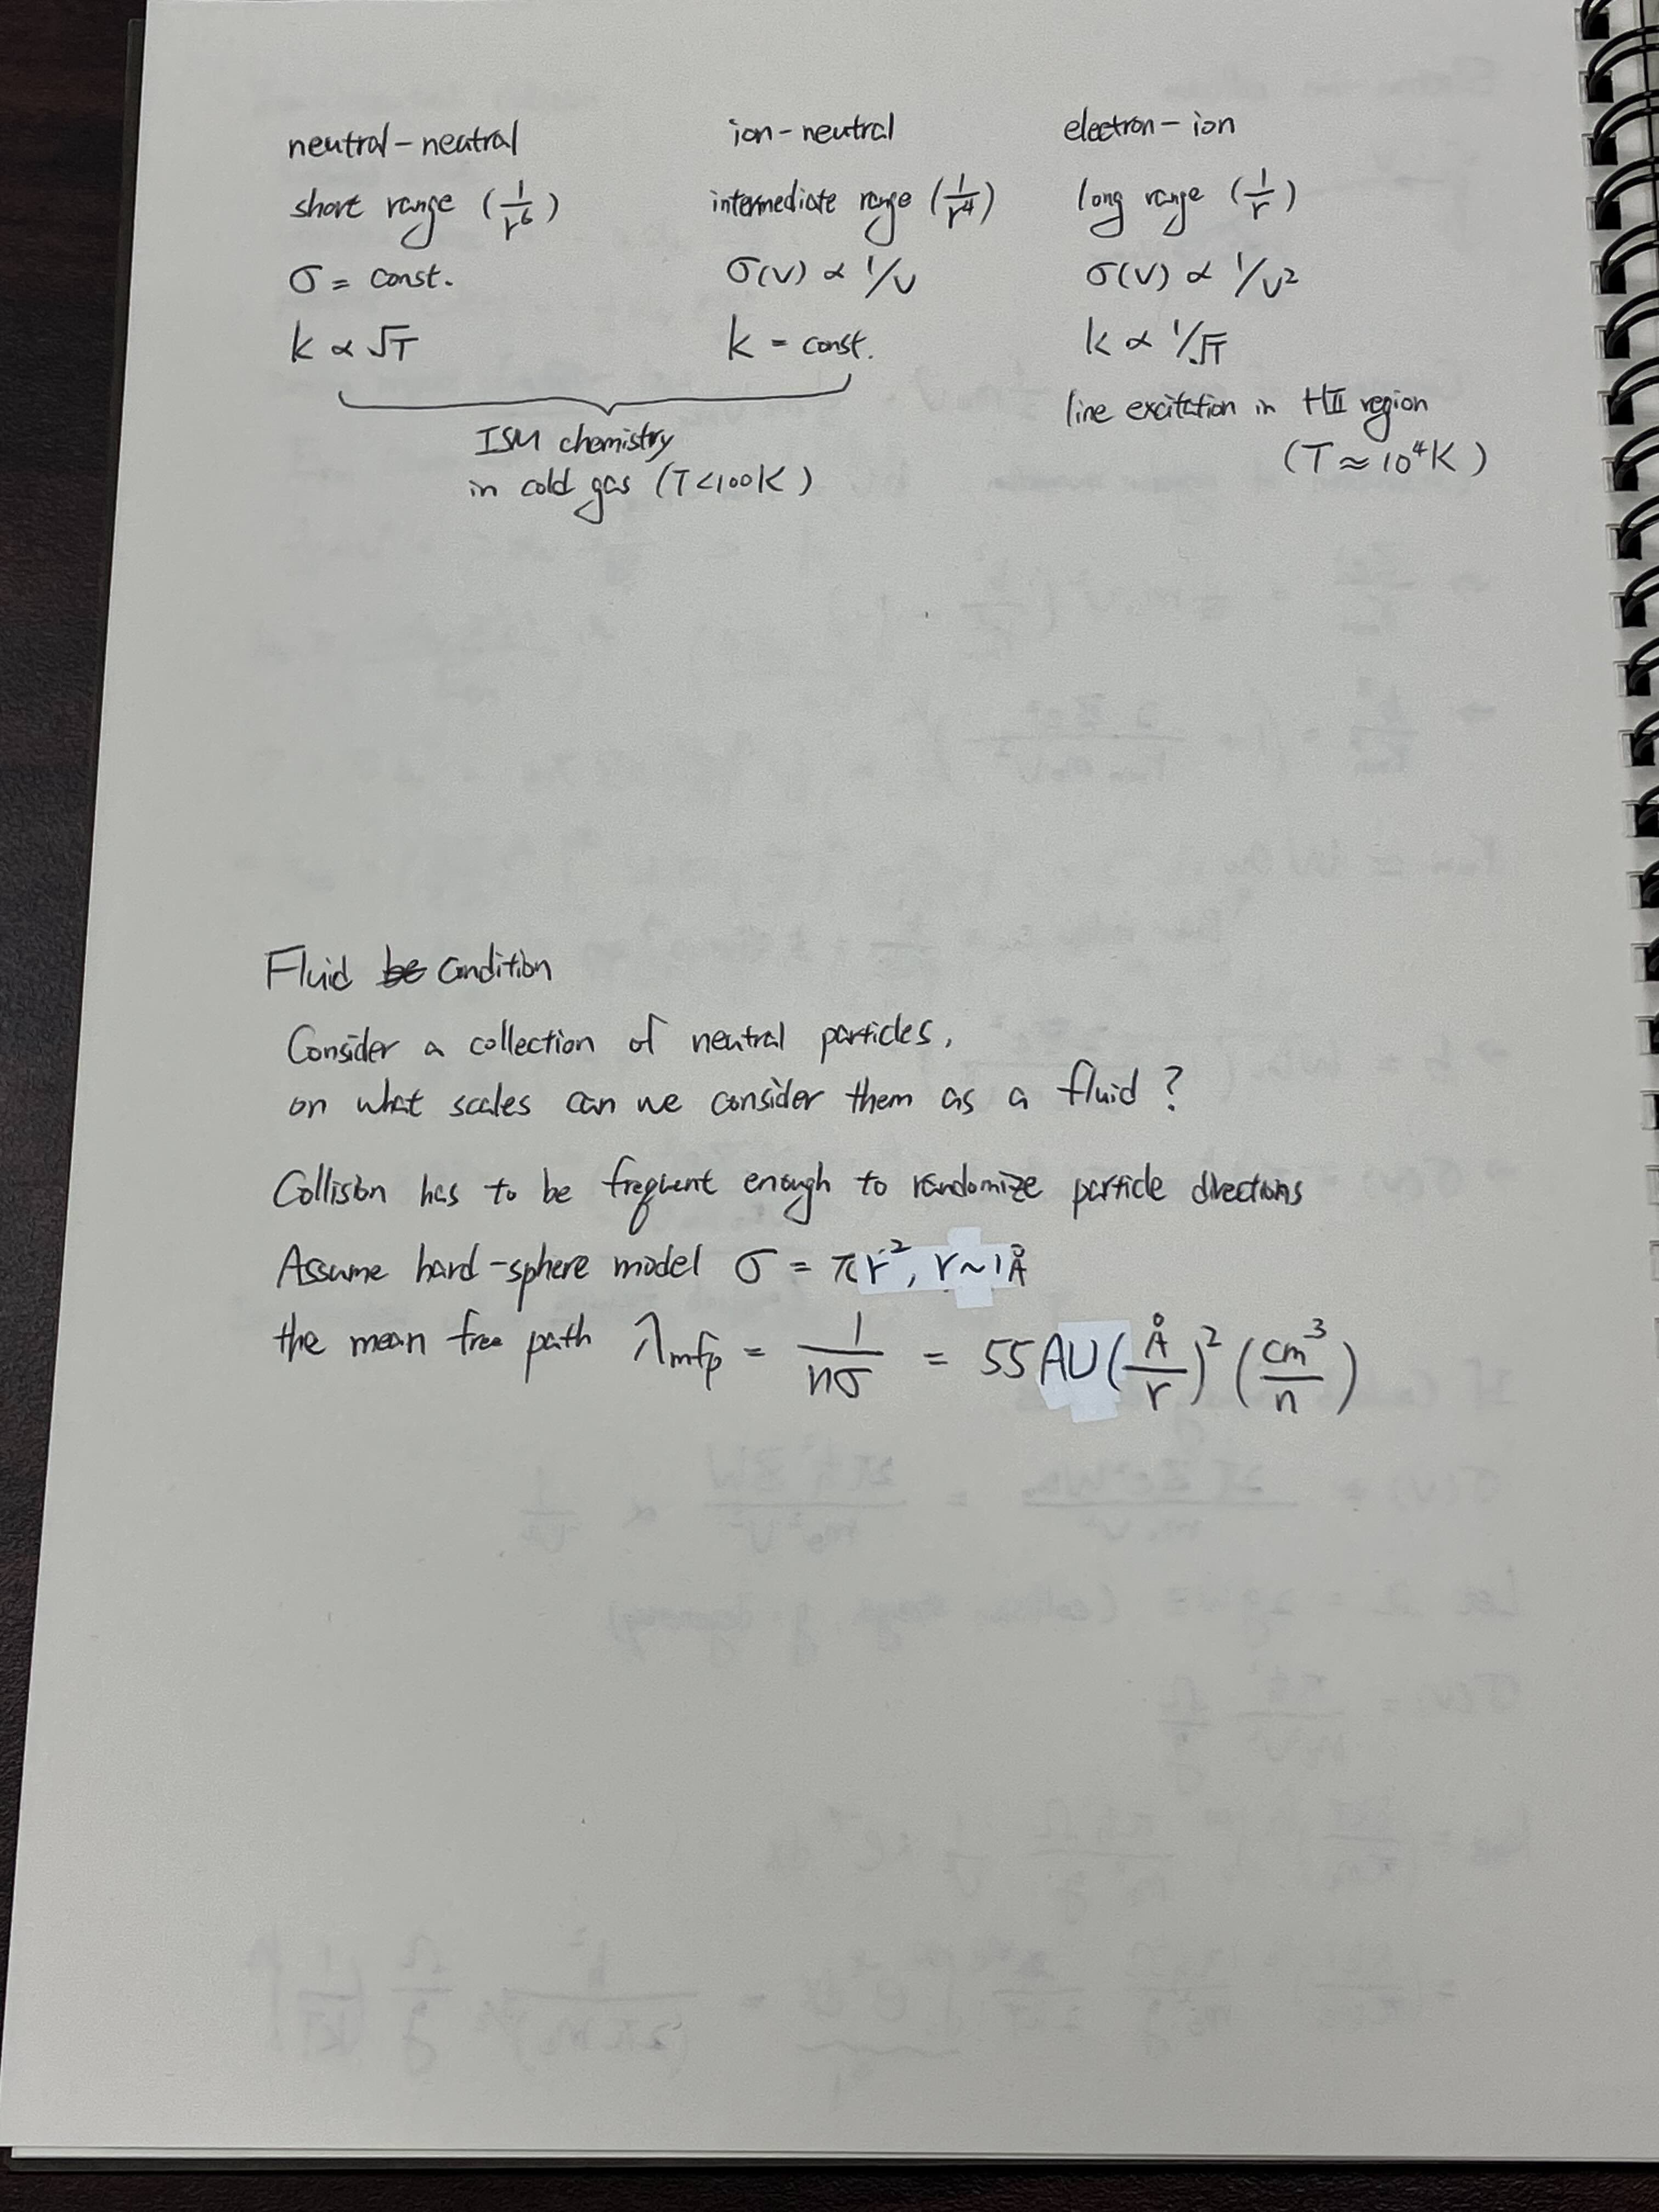 neutral-neutral ion-neutral electron-ion
short range (1/r⁶) intermediate range (1/r⁴) long range (1/r)
σ = const. σ(v) ∝ 1/v σ(v) ∝ 1/v²
k ∝ √T k = const. k ∝ 1/√T
line excitation in HII region
(T ≈ 10⁴K)
ISM chemistry
in cold gas (T<100K)
Fluid be Condition
Consider a collection of neutral particles,
on what scales can we consider them as a fluid?
Collision has to be frequent enough to randomize particle directions
Assume hard-sphere model σ = πr², r~1Å
the mean free path λmfp = 1/nσ = 55AU(Å/r)²(cm³/n)